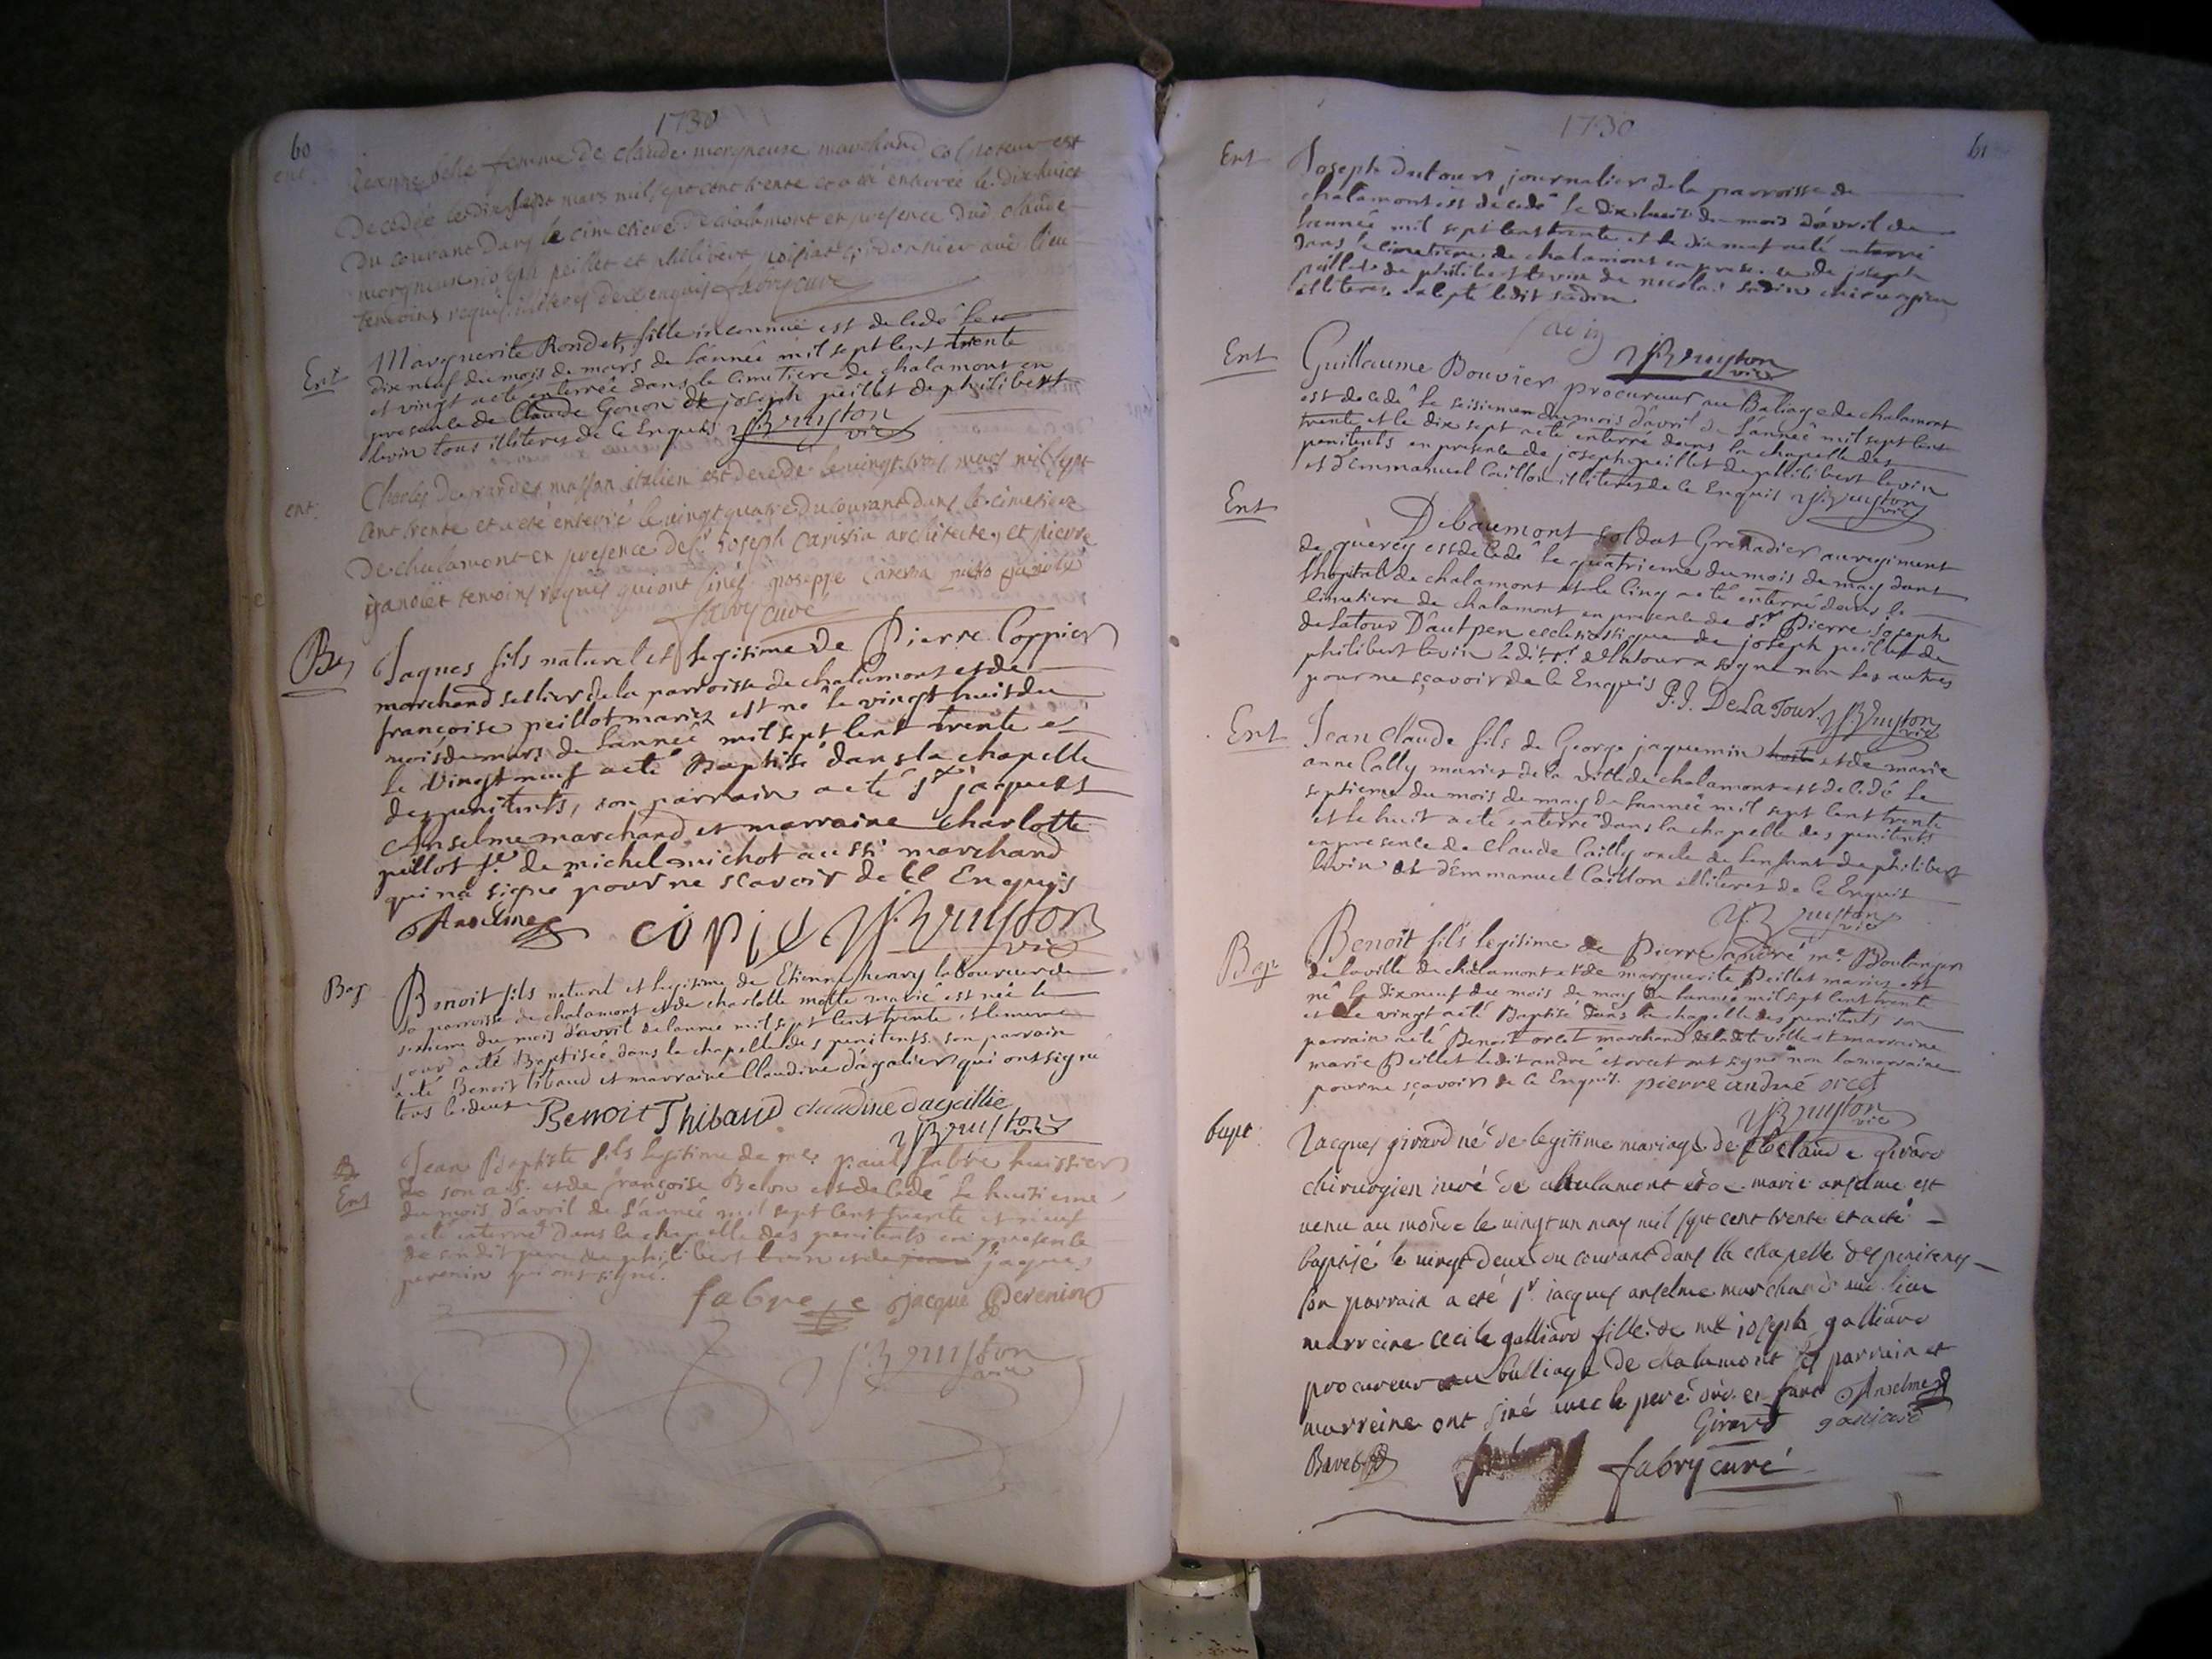 1730
60
ent.
Jeanne femme de claude morgneux marchand est
decedée le dix sept mars mil sept cent trente et a été enterrée le dix huict
du courant dans le cimetiere de chalamont en presence dud claude
morgneux joseph peillet et philibert cordonnier
temoins requis illiteres de ce enquis fabry curé
Ent
Marguerite Rondet, fille inconnuë est decedé le
dix neuf du mois de mars de l'année mil sept cent trente
et vingt a eté enterrée dans le cimetiere de chalamont en
presence de Claude Gonon de joseph peillet de philibert
levin tous illiteres de ce Enquis
vic
ent.
Charles masson italien est decedé le vingt trois mars mil sept
cent trente et a eté enterré le vingt quatre du courant dans le cimetiere
de chalamont en presence de sr joseph architecte, et pierre
temoins requis qui ont siné gioseppe
fabry curé
Jaques fils naturel et legitime de Pierre Coppier
marchand sellier de la parroisse de chalamont et de
françoise peillot mariez est né le vingt huit du
mois de mars de l'année mil sept cent trente et
le vingt neuf a eté Baptisé dans la chapelle
des penitents, son parrain a eté Sr jacques
Anselme marchand et marraine charlotte
pillot fe de michel michot aussi marchand
qui na signé pour ne scavoir de ce Enquis
Anselme
vic
Bap
Benoit fils naturel et legitime de Etienne henry laboureur de
la parroisse de chalamont et de charlotte motte marié est née le
sixieme du mois d'avril de l'année mil sept cent trente et le meme
jour a eté Baptisée dans la chapelle des penitents son parrain
a eté Benoit tibaud et marraine Claudine dagalier qui ont signé
tous les deux Benoit Thibaud claudine dagallie
vic
Ent
Jean Baptiste fils legitime de me paul fabre huissier
et de françoise Belon est decedé le huitieme
du mois d'avril de l'année mil sept cent trente et neuf
a eté enterré dans la chapelle des penitents en presence
de sondit pere de philibert levin et de jaques
perenin qui ont signé.
fabre jacque Perenin
vic
1730
61
Ent
Joseph dutour journalier de la parroisse de
chalamont est decedé le dix huit du mois d'avril de
l'année mil sept cent trente et le dix neuf a eté enterré
dans le cimetiere de chalamont en presence de joseph
peillet de philibert levin de nicolas sadin chirurgien
illiteres excepté ledit sadin
sadin
vic
Ent
Guillaume Bouvier procureur au Baliage de chalamont
est decedé le seisieme du mois d'avril de l'année mil sept cent
trente et le dix sept a eté enterré dans la chapelle des
penitents en presence de joseph peillet de philibert levin
et d'emmanuel Caillon illiteres de ce Enquis
vic
Ent
Debaumont soldat Grenadier au regiment
de quercy est decedé le quatrieme du mois de may dans
l'hopital de chalamont et le cinq a eté enterré dans le
cimetiere de chalamont en presence de Sr Pierre joseph
de Latour D'autpen ecclesiastique de joseph peillet de
philibert levin ledit Sr delatour a signé non les autres
pour ne sçavoir de ce Enquis P. J. De La Tour
vic
Ent
Jean Claude fils de George jaquemin et de marie
anne Cally mariez de la ville de chalamont est decedé le
septieme du mois de may de l'année mil sept cent trente
et le huit a eté enterré dans la chapelle des penitents
en presence de Claude Cailly oncle de l'enfant de philibert
levin et d'Emmanuel Caillon illiteres de ce Enquis
vic
Bap
Benoit fils legitime de Pierre andré me Boulanger
de la ville de chalamont et de marguerite Peillet mariez est
né le dix neuf du mois de may de l'année mil sept cent trente
et le vingt a eté Baptisé dans la chapelle des penitents son
parrain a eté Benoit orcet marchand de ladite ville et marraine
marie Peillet ledit andré et orcet ont signé non la marraine
pour ne sçavoir de ce Enquis. pierre andré orcet
vic
bapt
Jacques girard né de legitime mariage de Claude girard
chirurgien juré de chalamont et de marie anselme est
venu au monde le vingt un may mil sept cent trente et a eté
baptisé le vingt deux du courant dans la chapelle des penitens
son parrain a eté sr jacques anselme marchand
marreine cecile galliard fille de me joseph galliard
procureur au balliage de chalamont les parrain et
marreine ont siné avec le pere Anselme
Girard galliard
fabry curé